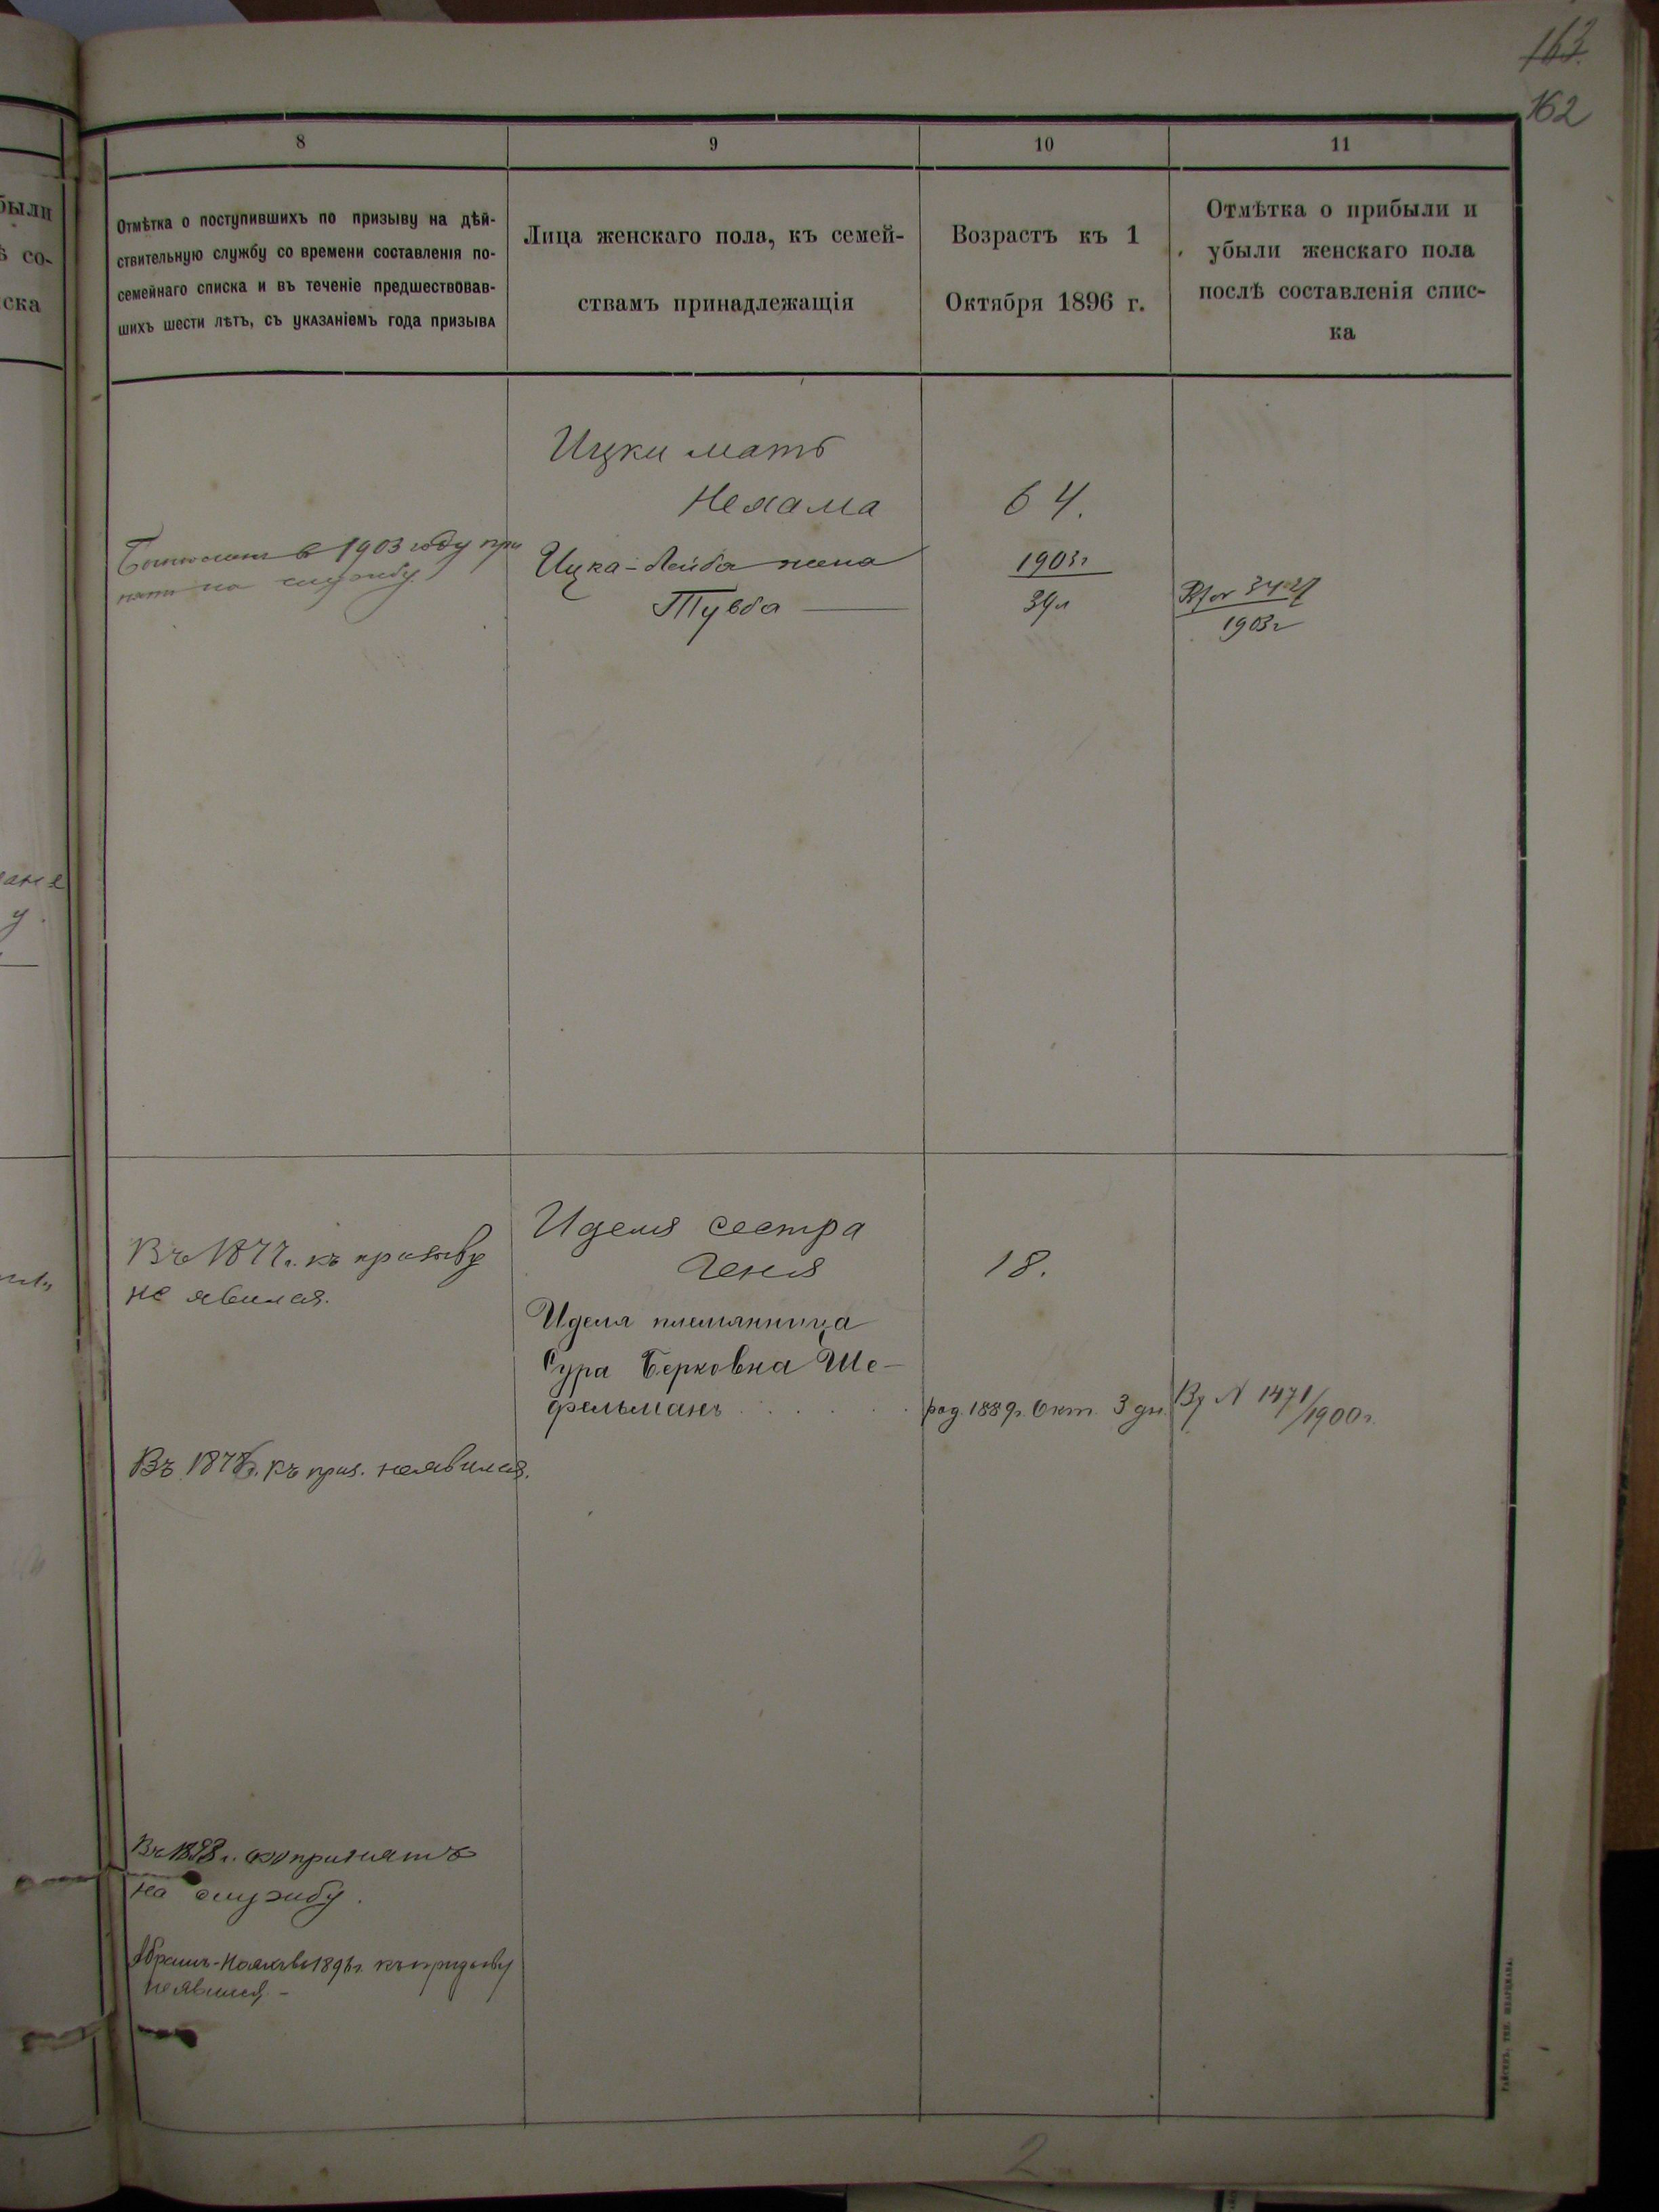 163.
162
8
9
10
11
Отмѣтка о поступившихъ по призыву на дѣй-
ствительную службу со времени составленія по-
семейнаго списка и въ теченіе предшествовав-
шихъ шести лѣтъ, съ указаніемъ года призыва
Лица женскаго пола, къ семей-
ствамъ принадлежащія
Возрастъ къ 1
Октября 1896 г.
Отмѣтка о прибыли и
убыли женскаго пола
послѣ составленія спис-
ка
были
со-
ска
Ицки мать
Нехама
64.
в 1903 году при
нятъ на службу
Ицка-Лейба жена
Туба
1903г
34л
1903г
Въ 1877г. къ призыву
не явился.
Иделя сестра
Геня
18.
Иделя племянница
Сура Берковна Ше-
фельманъ
род. 1889г. Окт. 3 дн.
N 1471/1900г.
Въ 1878г. къ приз. неявился.
Въ 1888г. принятъ
на службу.
Абрамъ- 1896г. къ призыву
неявился -
2